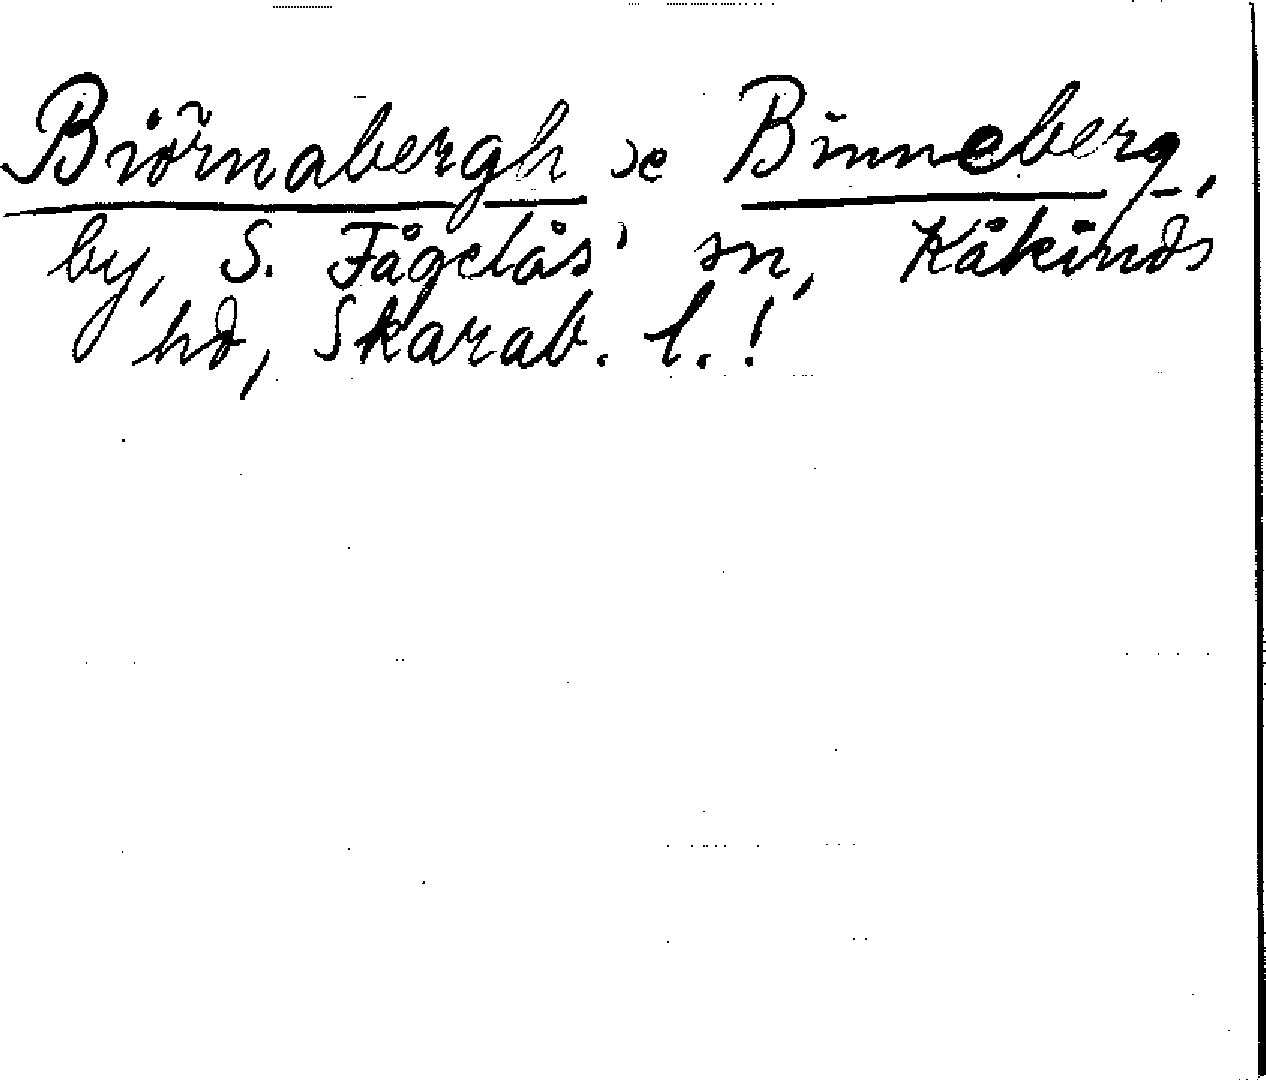 Biörnabergh se Binneberg,
by, S. Fågelås' sn, Kåkinds
hd, Skarab. l.!